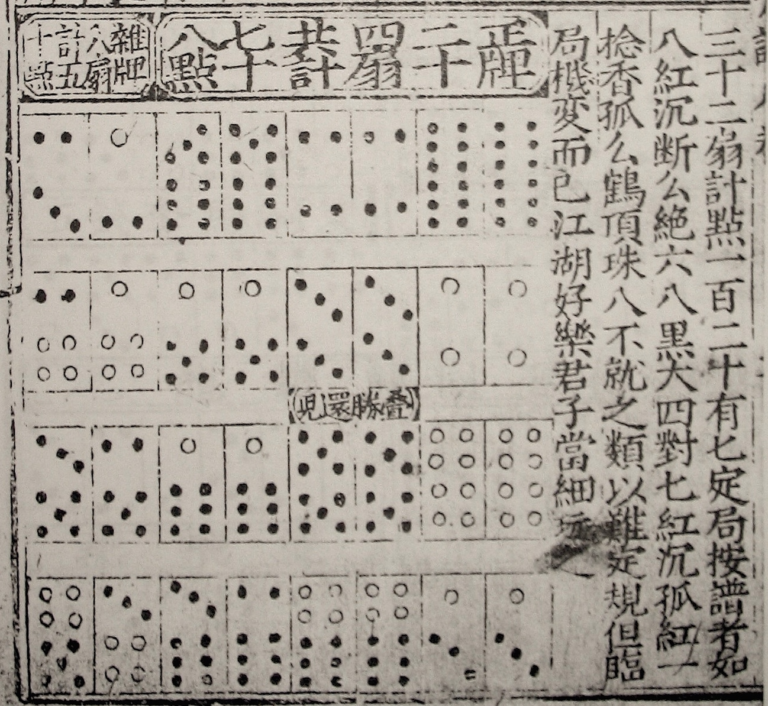 三十二扇計點一百二十有七定局按譜者如
八紅沉断么絶六八黒大四對七紅沉孤紅一
捻香孤么鶴頂珠八不就之類以難定規但臨
局機変而已江湖好樂君子當細玩之
正牌二十四扇共計七十八點
雜牌八扇計五十點
疊勝還児